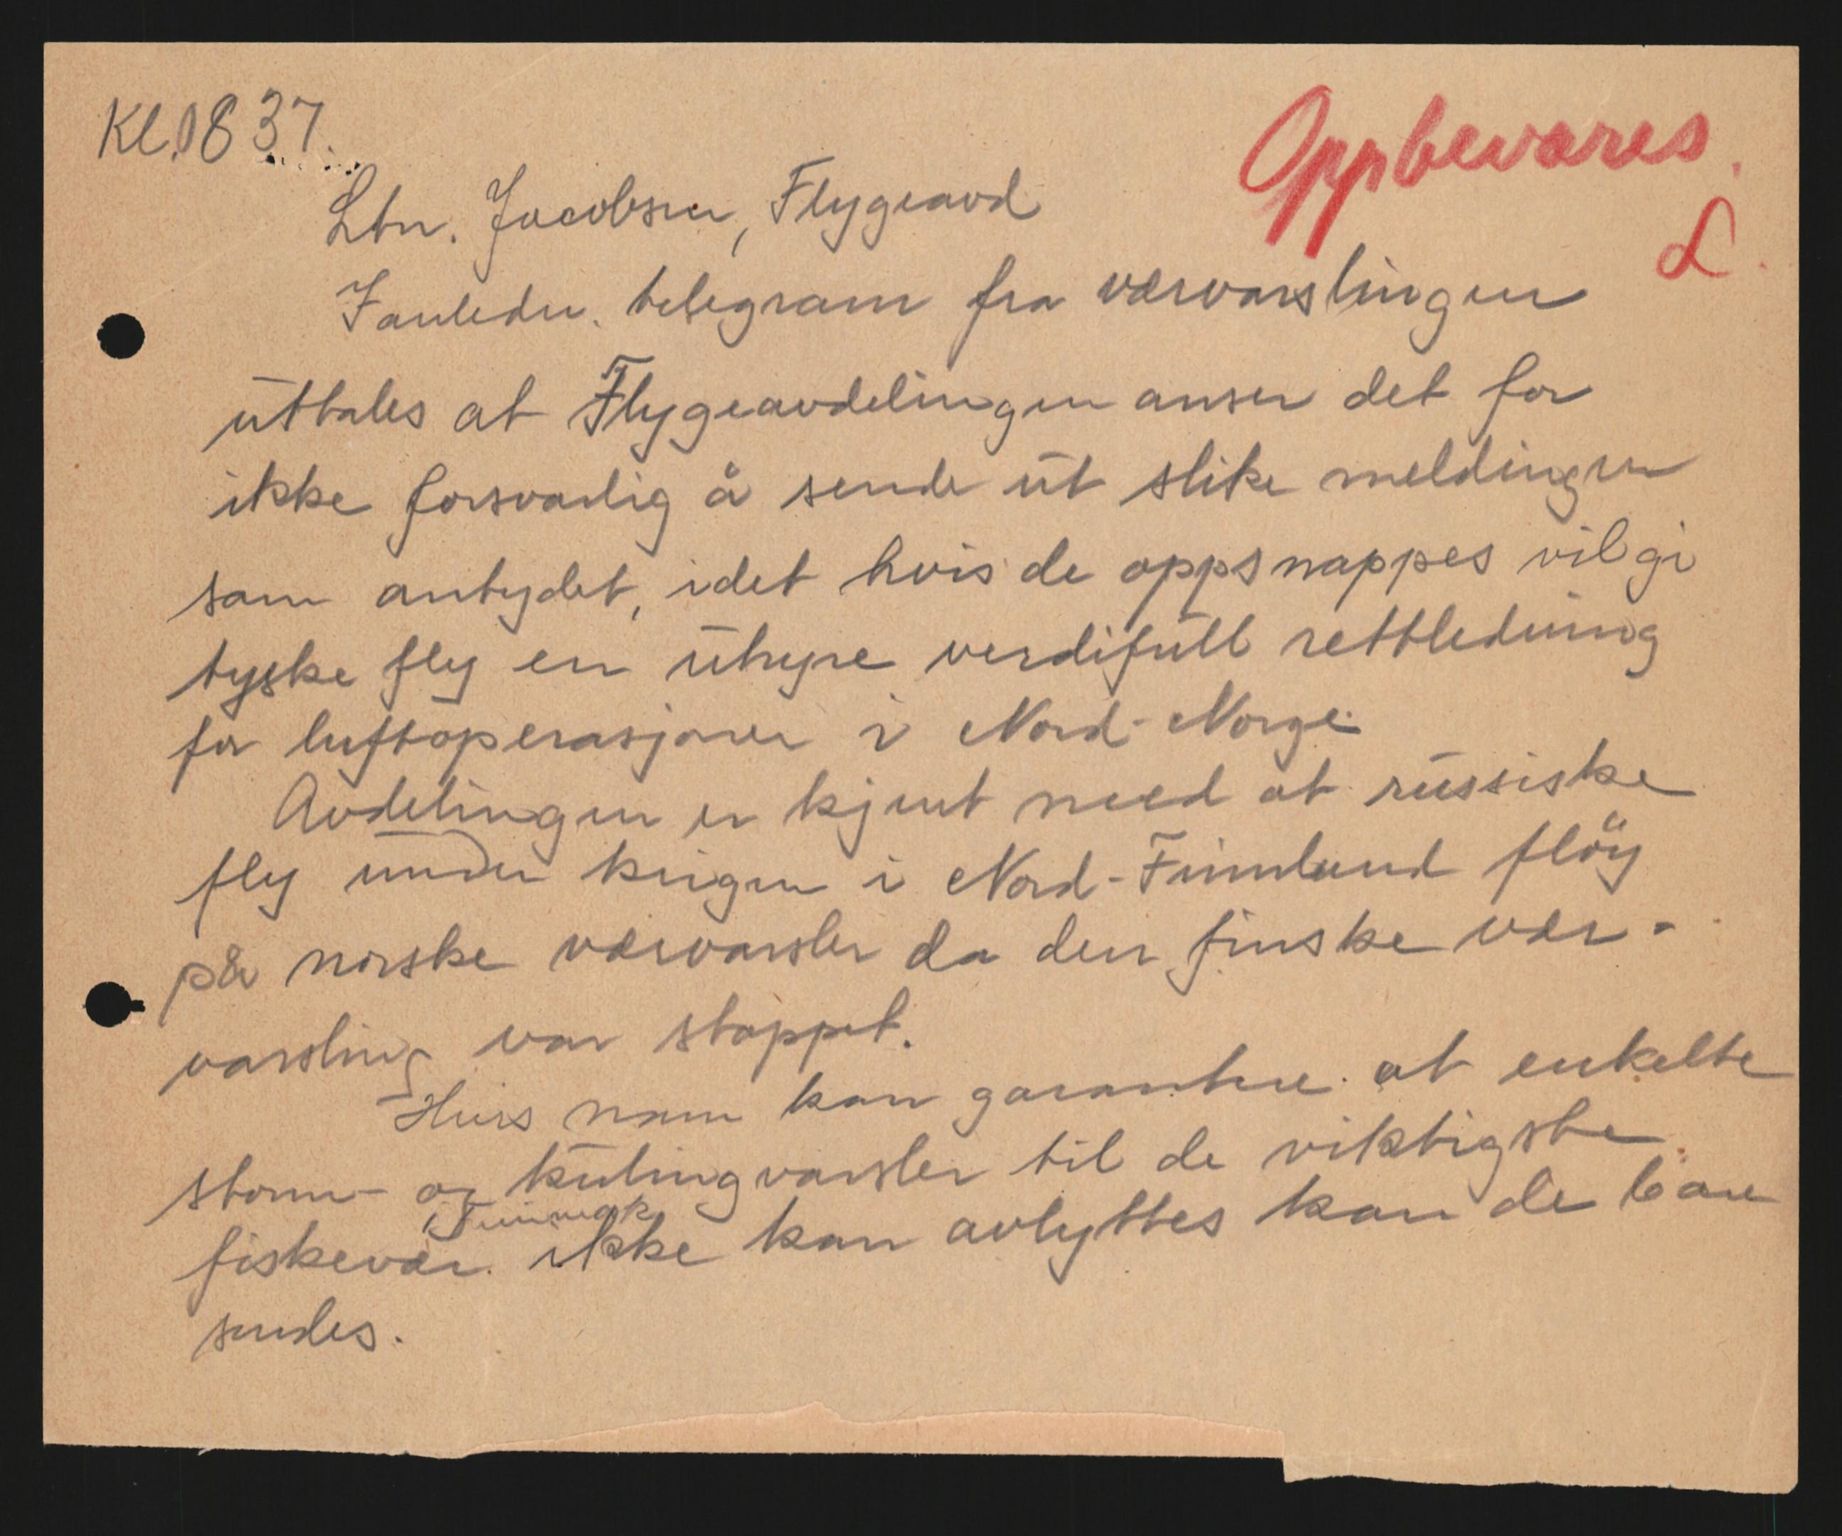 Kl. 1837.
Oppbevares.
L.
Ltn. Jacobsen, Flygeavd
I anledn. telegram fra værvarslingen
uttales at Flygeavdelingen anser det for
ikke forsvarlig å sende ut slike meldinger
som antydet, idet hvis de oppsnappes vil gi
tyske fly en uhyre verdifull rettledning
for luftoperasjoner i Nord-Norge.
Avdelingen er kjent med at russiske
fly under krigen i Nord-Finnland fløy
på norske værvarsler da den finske vær-
varsling var stoppet.
Hvis man kan garantere at enkelte
storm- og kulingvarsler til de viktigste
i Finnmark
fiskevær ikke kan avlyttes kan de bare
sendes.